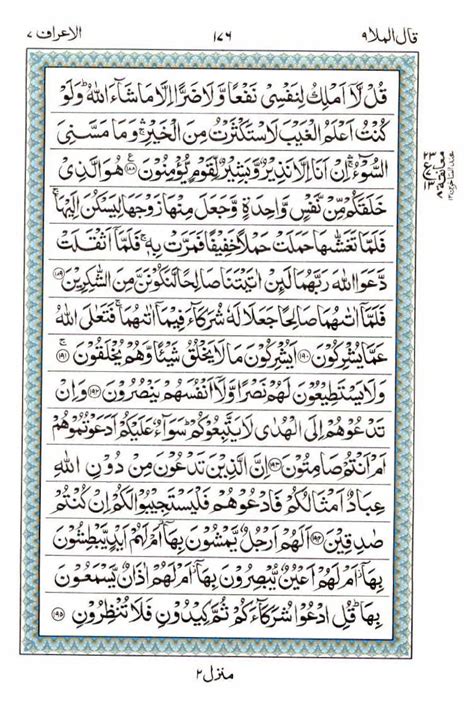 قال الملا ٩ ١٧٦ الاعراف ٧
قُلْ لَّاۤ اَمْلِكُ لِنَفْسِیْ نَفْعًا وَّلَا ضَرًّا اِلَّا مَا شَآءَ اللّٰهُ ؕ وَلَوْ
كُنْتُ اَعْلَمُ الْغَیْبَ لَاسْتَكْثَرْتُ مِنَ الْخَیْرِ ۛۚ وَمَا مَسَّنِیَ
السُّوْٓءُ ۛۚ اِنْ اَنَا اِلَّا نَذِیْرٌ وَّبَشِیْرٌ لِّقَوْمٍ یُّؤْمِنُوْنَ ﴿۱۸۸﴾ هُوَ الَّذِیْ
خَلَقَكُمْ مِّنْ نَّفْسٍ وَّاحِدَةٍ وَّجَعَلَ مِنْهَا زَوْجَهَا لِیَسْكُنَ اِلَیْهَا ۚ
فَلَمَّا تَغَشّٰىهَا حَمَلَتْ حَمْلًا خَفِیْفًا فَمَرَّتْ بِهٖ ۚ فَلَمَّاۤ اَثْقَلَتْ
دَّعَوَا اللّٰهَ رَبَّهُمَا لَئِنْ اٰتَیْتَنَا صَالِحًا لَّنَكُوْنَنَّ مِنَ الشّٰكِرِیْنَ ﴿۱۸۹﴾
فَلَمَّاۤ اٰتٰىهُمَا صَالِحًا جَعَلَا لَهٗ شُرَكَآءَ فِیْمَاۤ اٰتٰىهُمَا ۚ فَتَعٰلَی اللّٰهُ
عَمَّا یُشْرِكُوْنَ ﴿۱۹۰﴾ اَیُشْرِكُوْنَ مَا لَا یَخْلُقُ شَیْـًٔا وَّهُمْ یُخْلَقُوْنَ ﴿۱۹۱﴾
وَلَا یَسْتَطِیْعُوْنَ لَهُمْ نَصْرًا وَّلَاۤ اَنْفُسَهُمْ یَنْصُرُوْنَ ﴿۱۹۲﴾ وَاِنْ
تَدْعُوْهُمْ اِلَی الْهُدٰی لَا یَتَّبِعُوْكُمْ ؕ سَوَآءٌ عَلَیْكُمْ اَدَعَوْتُمُوْهُمْ
اَمْ اَنْتُمْ صَامِتُوْنَ ﴿۱۹۳﴾ اِنَّ الَّذِیْنَ تَدْعُوْنَ مِنْ دُوْنِ اللّٰهِ
عِبَادٌ اَمْثَالُكُمْ فَادْعُوْهُمْ فَلْیَسْتَجِیْبُوْا لَكُمْ اِنْ كُنْتُمْ
صٰدِقِیْنَ ﴿۱۹۴﴾ اَلَهُمْ اَرْجُلٌ یَّمْشُوْنَ بِهَاۤ ؗ اَمْ لَهُمْ اَیْدٍ یَّبْطِشُوْنَ
بِهَاۤ ؗ اَمْ لَهُمْ اَعْیُنٌ یُّبْصِرُوْنَ بِهَاۤ ؗ اَمْ لَهُمْ اٰذَانٌ یَّسْمَعُوْنَ
بِهَا ؕ قُلِ ادْعُوْا شُرَكَآءَكُمْ ثُمَّ كِیْدُوْنِ فَلَا تُنْظِرُوْنِ ﴿۱۹۵﴾
منزل ٢